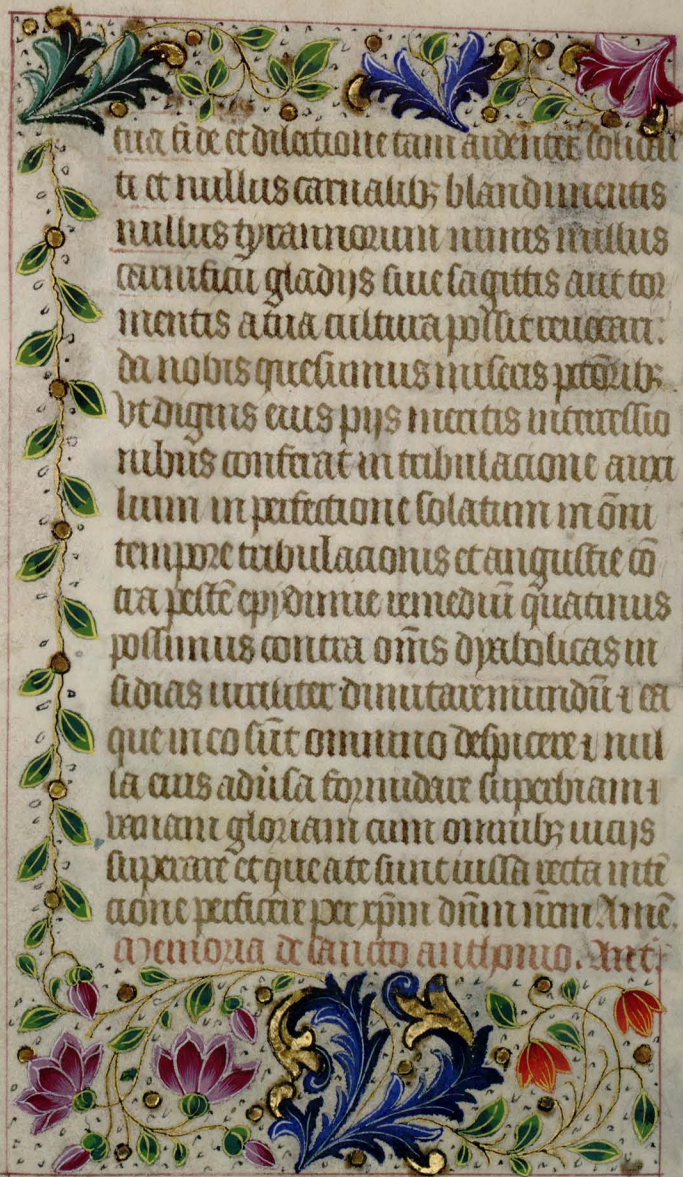 tua fide et dilectione tam ardenter solidasti
ti et nullus carnalibꝫ blandimentis
nullus tyrannorum minis nullus
carnificū gladijs siue sagittis aut tor
mentis a tua cultura possit reuocari:
da nobis quesumus miseris pctōribꝫ
vt dignis eius pijs meritis intercessio
nibus conferat in tribulacione auxi
lium in perfectione solatium in oīni
tempore tribulacionis et angustie cō
tra pestē epydimie remediū quatinus
possimus contra om̄s dyabolicas in
sidias uiriliter dimicare mundū ⁊ ea
que in eo sūt omnino despicere ⁊ nul
la eius aduˀsa formidare superbiam ⁊
veniam gloriam cum omnibꝫ uicijs
superare et que a te sunt iussa recta intē
cione perficere per xp̄m dn̄m nr̄m. Amē.
Memoria de sancto anthonio. Ant.